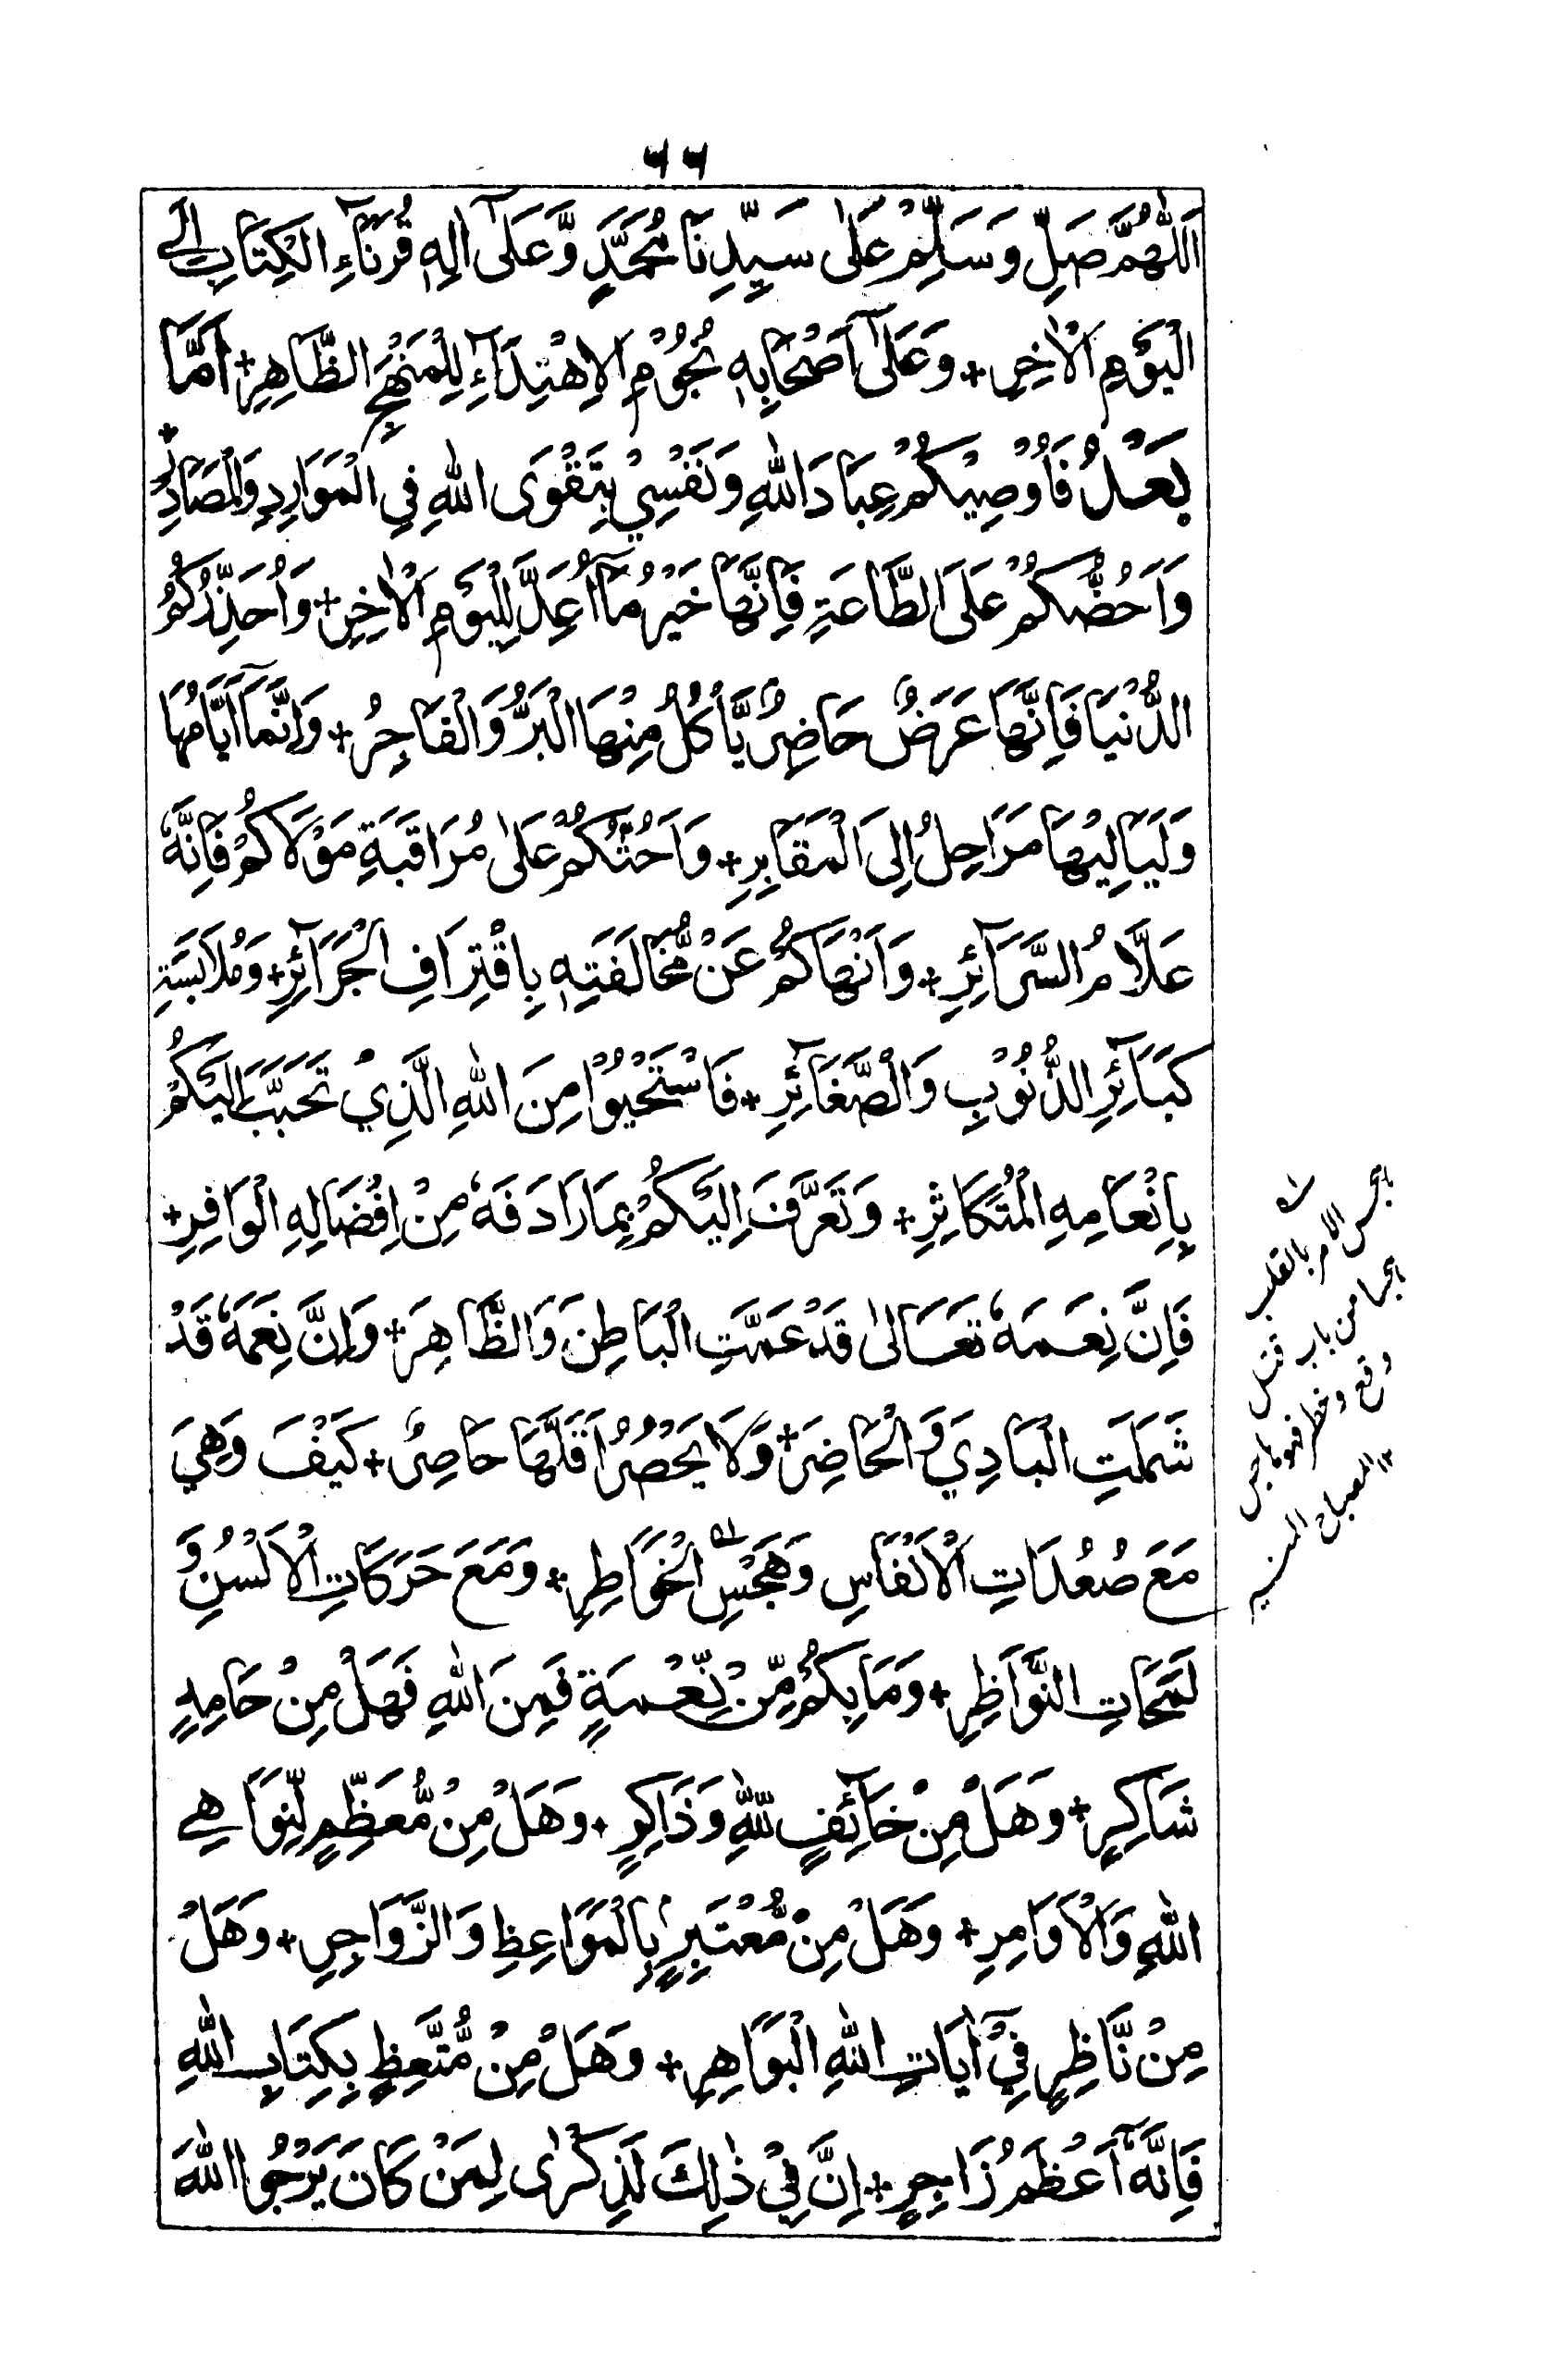 ٦٦
اَللّٰهُمَّ صَلِّ وَسَلِّمْ عَلٰى سَيِّدِنَا مُحَمَّدٍ وَّعَلٰۤى اٰلِهٖ قُرَنَآءِ الْكِتَابِ اِلَے
الْيَوْمِ الْاٰخِرِ + وَعَلٰۤى اَصْحَابِهٖ نُجُوْمِ الْاِهْتِدَآءِ لِلْمَنْهَجِ الظَّاهِرِ + اَمَّا
بَعْدُ فَاُوْصِيْكُمْ عِبَادَ اللّٰهِ وَنَفْسِيْ بِتَقْوَى اللّٰهِ فِي الْمَوَارِدِ وَالْمَصَادِرِ +
وَاَحُضُّكُمْ عَلَى الطَّاعَةِ فَاِنَّهَا خَيْرُ مَاۤ اُعِدَّ لِلْيَوْمِ الْاٰخِرِ + وَاُحَذِّرُكُمُ
الدُّنْيَا فَاِنَّهَا عَرَضٌ حَاضِرٌ يَّاْكُلُ مِنْهَا الْبَرُّ وَالْفَاجِرُ + وَاِنَّمَاۤ اَيَّامُهَا
وَلَيَالِيْهَا مَرَاحِلُ اِلَى الْمَقَابِرِ + وَاَحُثُّكُمْ عَلٰى مُرَاقَبَةِ مَوْلَاكُمْ فَاِنَّهٗ
عَلَّامُ السَّرَآئِرِ + وَاَنْهَاكُمْ عَنْ مُّخَالَفَتِهٖ بِاقْتِرَافِ الْجَرَآئِرِ + وَمُلَابَسَةِ
كَبَآئِرِ الذُّنُوْبِ وَالصَّغَآئِرِ + فَاسْتَحْيُوْا مِنَ اللّٰهِ الَّذِيْ تَحَبَّبَ اِلَيْكُمْ
بِاِنْعَامِهِ الْمُتَكَاثِرِ + وَتَعَرَّفَ اِلَيْكُمْ بِمَا رَادَفَهٗ مِنْ اِفْضَالِهِ الْوَافِرِ +
فَاِنَّ نِعَمَهٗ تَعَالٰى قَدْ عَمَّتِ الْبَاطِنَ وَالظَّاهِرَ + وَاِنَّ نِعَمَهٗ قَدْ
شَمَلَتِ الْبَادِيَ وَالْحَاضِرَ + وَلَا يَحْصُرُ اَقَلَّهَا حَاصِرٌ + كَيْفَ وَهِيَ
مَعَ صُعُدَاتِ الْاَنْفَاسِ وَهَجْسِ الْخَوَاطِرِ + وَمَعَ حَرَكَاتِ الْاَلْسُنِ وَ
لَمَحَاتِ النَّوَاظِرِ + وَمَا بِكُمْ مِّنْ نِّعْمَةٍ فَمِنَ اللّٰهِ فَهَلْ مِنْ حَامِدٍ
شَاكِرٍ + وَهَلْ مِنْ خَآئِفٍ لِلّٰهِ وَذَاكِرٍ + وَهَلْ مِنْ مُّعَظِّمٍ لِّنَوَاهِے
اللّٰهِ وَالْاَوَامِرِ + وَهَلْ مِنْ مُّعْتَبِرٍ بِالْمَوَاعِظِ وَالزَّوَاجِرِ + وَهَلْ
مِنْ نَّاظِرٍ فِيْۤ اٰيَاتِ اللّٰهِ الْبَوَاهِرِ + وَهَلْ مِنْ مُّتَّعِظٍ بِكِتَابِ اللّٰهِ
فَاِنَّهٗۤ اَعْظَمُ زَاجِرٍ + اِنَّ فِيْ ذٰلِكَ لَذِكْرٰى لِمَنْ كَانَ يَرْجُوا اللّٰهَ
الامر بالقلب
من باب قتل
وقع وخطر فهو هاجس